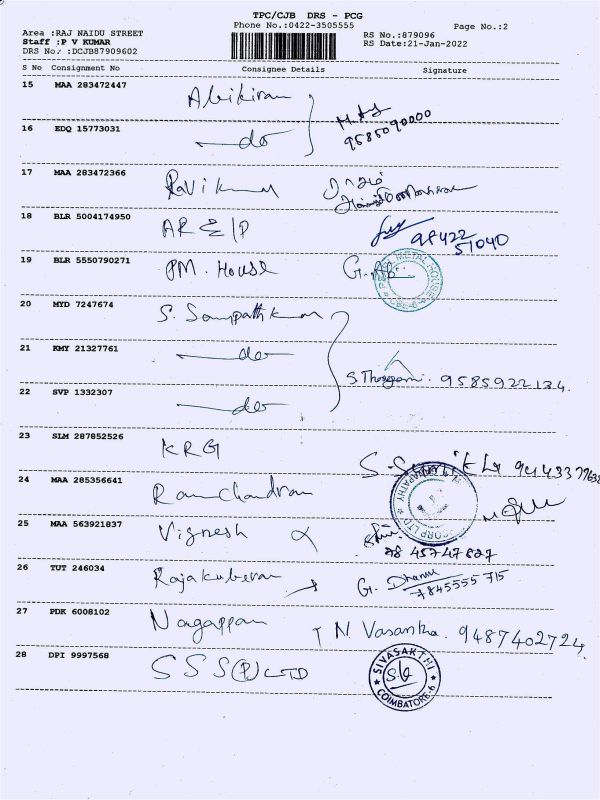 TPC/CJB DRS - PCG
Phone No.:0422-3505555
Page No.:2
Area :RAJ NAIDU STREET
Staff :P V KUMAR
DRS No/ :DCJB87909602
RS No.:879096
RS Date:21-Jan-2022
S No Consignment No Consignee Details Signature
15 MAA 283472447 Abikiran
9585090000
16 EDQ 15773031 do
17 MAA 283472366 Ravikumar
18 BLR 5004174950 AR & IP 98422
51040
19 BLR 5550790271 PM. House METAL HOUSE CBE-6
20 MYD 7247674 S. Sampathkumar
21 KMY 21327761 do
S. 9585922134.
22 SVP 1332307 do
23 SLM 287852526 KRG
24 MAA 285356641 Ramchandran
25 MAA 563921837 Vignesh
26 TUT 246034 Rajakuberan G. Dharani
7845555 715
27 PDK 6008102 Nagappan T N Vasantha. 9487402724
28 DPI 9997568 S S S (P) LTD SIVASAKTHI COIMBATORE-6